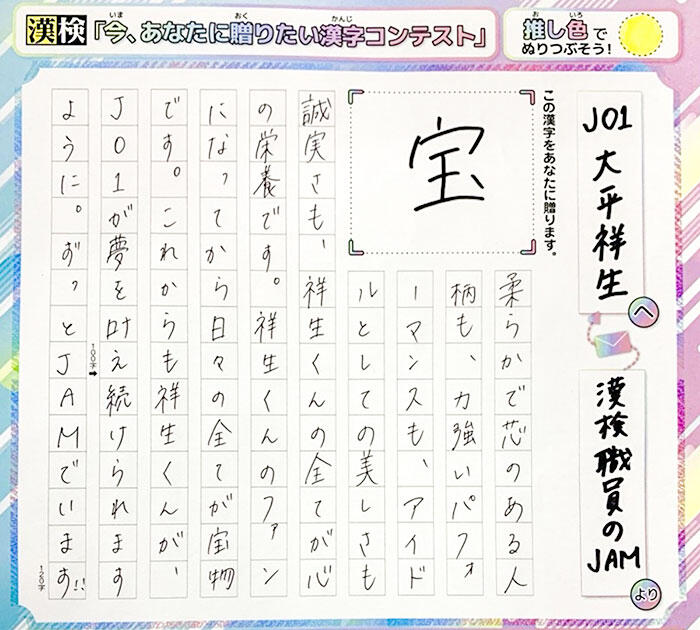 漢検「今、あなたに贈りたい漢字コンテスト」
いま
おく
かんじ
推し色で
ぬりつぶそう!
お
いろ
JO1 大平祥生
へ
漢検職員のJAM
より
この漢字をあなたに贈ります。
宝
柔らかで芯のある人
柄も、力強いパフォ
ーマンスも、アイド
ルとしての美しさも
誠実さも、祥生くんの全てが心
の栄養です。祥生くんのファン
になってから日々の全てが宝物
です。これからも祥生くんが、
JO1が夢を叶え続けられます
ように。ずっとJAMでいます!!
100字
120字